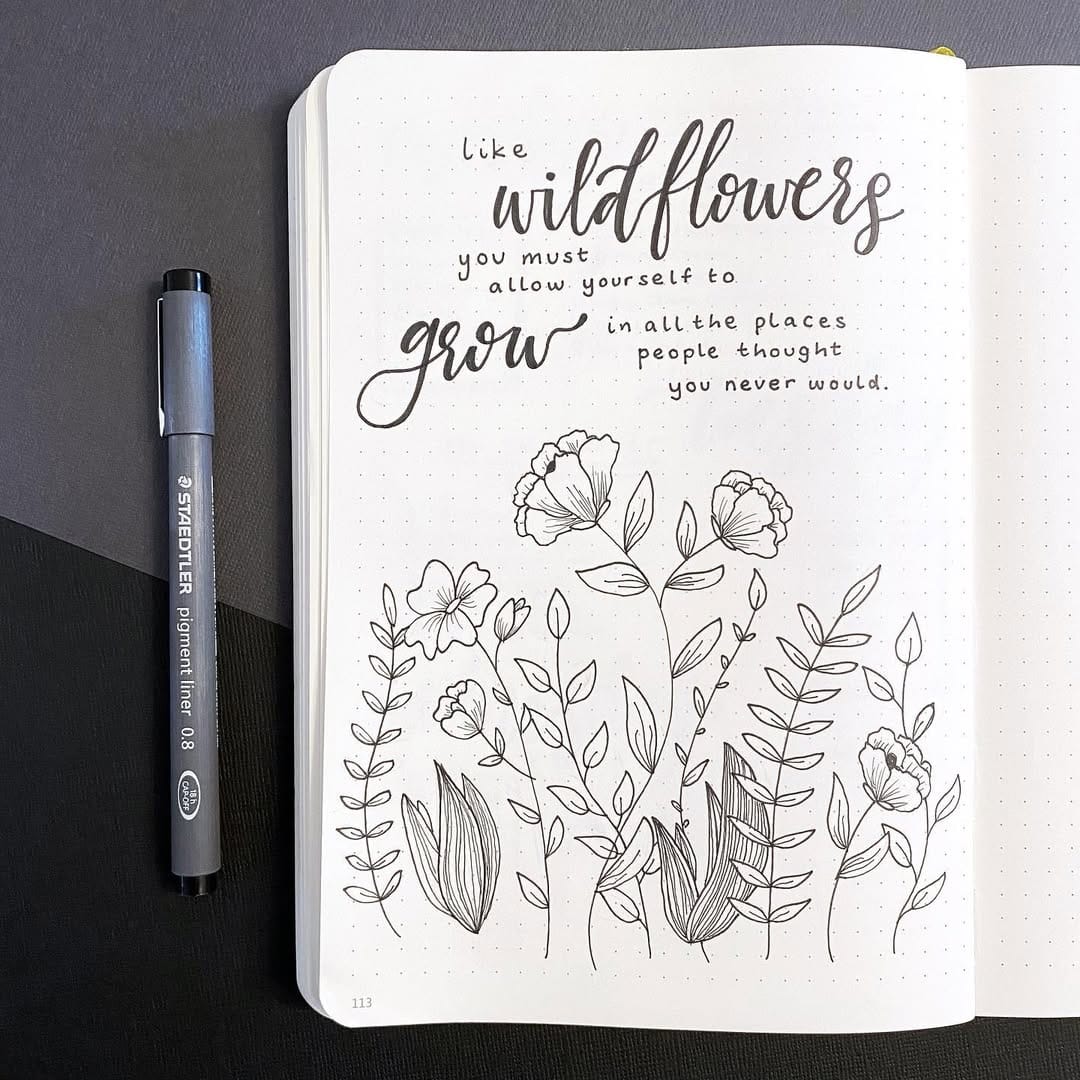 like
wildflowers
you must
allow yourself to
grow in all the places
people thought
you never would.
STAEDTLER pigment liner 0.8
18h
CAP-OFF
113